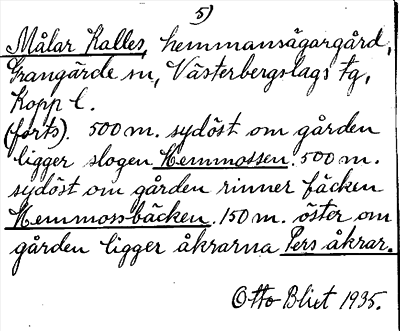 5)
Målar Kalles, hemmansägargård,
Grangärde sn, Västerbergslags tg,
Kopp l.
(forts). 500 m. sydöst om gården
ligger slogen Hemmossen. 500 m.
sydöst om gården rinner bäcken
Hemmossbäcken. 150 m. öster om
gården ligger åkrarna Pers åkrar.
Otto Blixt 1935.